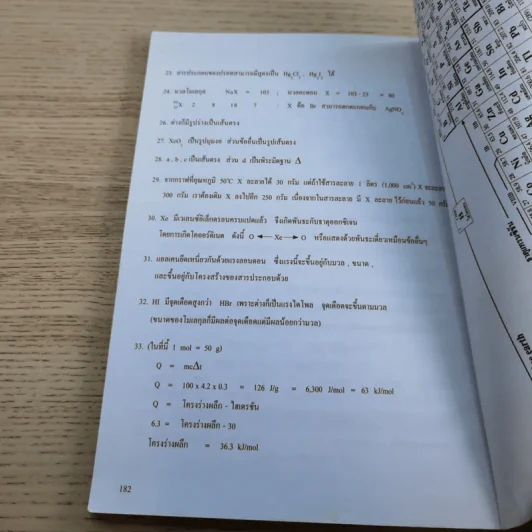 23. สารประกอบของปรอทสามารถมีสูตรเป็น Hg₂Cl₂, Hg₂I₂ ได้
24. มวลโมเลกุล NaX = 103 ; มวลอะตอม X = 103 - 23 = 80
X 2 8 18 7 : X คือ Br สามารถตกตะกอนกับ AgNO₃
26. ต่างก็มีรูปร่างเป็นเส้นตรง
27. XeO₂ เป็นรูปมุมงอ ส่วนข้ออื่นเป็นรูปเส้นตรง
28. a , b , c เป็นเส้นตรง ส่วน d เป็นพีระมิดฐาน Δ
29. จากกราฟที่อุณหภูมิ 50°C X ละลายได้ 30 กรัม แต่ถ้าใช้สารละลาย 1 ลิตร (1,000 cm³) X จะละลาย
300 กรัม เราต้องเติม X ลงไปอีก 250 กรัม เนื่องจากในสารละลาย มี X ละลายไว้ก่อนแล้ว 50 กรัม
30. Xe มีเวเลนซ์อิเล็กตรอนครบแปดแล้ว จึงเกิดพันธะกับธาตุออกซิเจน
โดยการเกิดโคออร์ดิเนต ดังนี้ O ← Xe → O หรือแสดงด้วยพันธะเดี่ยวเหมือนข้ออื่นๆ
31. แอลเคนยึดเหนี่ยวกันด้วยแรงลอนดอน ซึ่งแรงนี้จะขึ้นอยู่กับมวล , ขนาด ,
และขึ้นอยู่กับโครงสร้างของสารประกอบด้วย
32. HI มีจุดเดือดสูงกว่า HBr เพราะต่างก็เป็นแรงไดโพล จุดเดือดจะขึ้นตามมวล
(ขนาดของโมเลกุลก็มีผลต่อจุดเดือดแต่มีผลน้อยกว่ามวล)
33. (ในที่นี้ 1 mol = 50 g)
Q = mcΔt
Q = 100 x 4.2 x 0.3 = 126 J/g = 6,300 J/mol = 63 kJ/mol
Q = โครงร่างผลึก - ไฮเดรชัน
6.3 = โครงร่างผลึก - 30
โครงร่างผลึก = 36.3 kJ/mol
182